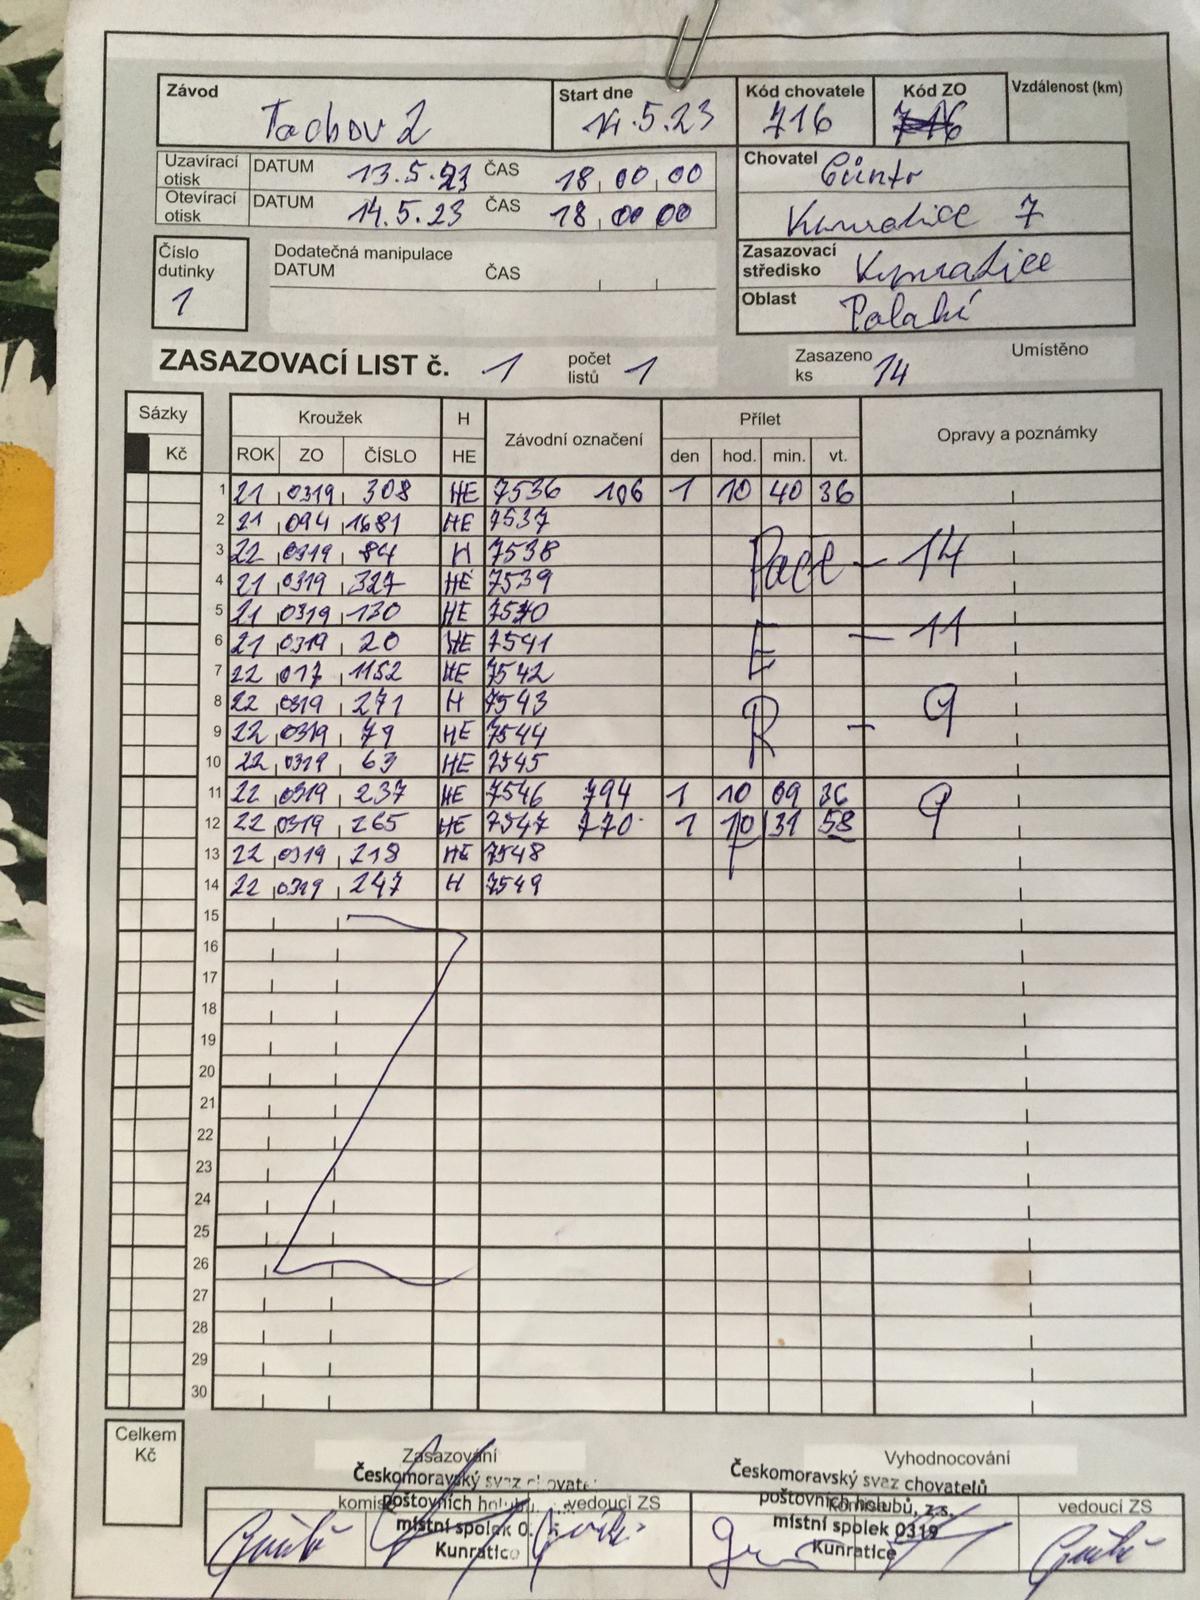 Závod Tachov 2 Start dne 14.5.23 Kód chovatele 716 Kód ZO Vzdálenost (km)
Uzavírací otisk DATUM 13.5.23 ČAS 18 00 00
Otevírací otisk DATUM 14.5.23 ČAS 18 00 00
Chovatel Güntr
Kunratice 7
Číslo dutinky 1
Dodatečná manipulace
DATUM ČAS
Zasazovací středisko Kunratice
Oblast Polabí
ZASAZOVACÍ LIST č. 1 počet listů 1 Zasazeno ks 14 Umístěno
Sázky Kroužek H Závodní označení Přílet Opravy a poznámky
Kč ROK ZO ČÍSLO HE den hod. min. vt.
1 21 0319 308 HE 7536 106 1 10 40 36
2 21 094 1681 HE 7537
3 22 0319 84 H 7538 Pace - 14
4 21 0319 327 HE 7539
5 21 0319 130 HE 7540
6 21 0319 20 HE 7541 E - 11
7 22 017 1152 HE 7542
8 22 0319 271 H 7543 R - 9
9 22 0319 79 HE 7544
10 22 0319 63 HE 7545
11 22 0319 237 HE 7546 794 1 10 09 36 9
12 22 0319 265 HE 7547 770 1 10 31 58
13 22 0319 218 HE 7548
14 22 0319 247 H 7549
15
16
17
18
19
20
21
22
23
24
25
26
27
28
29
30
Celkem Kč
Zasazování Vyhodnocování
Českomoravský svaz chovatelů
poštovních holubů, z.s.
místní spolek 0319
Kunratice
komise vedoucí ZS
Českomoravský svaz chovatelů
poštovních holubů, z.s.
místní spolek 0319
Kunratice
komise vedoucí ZS